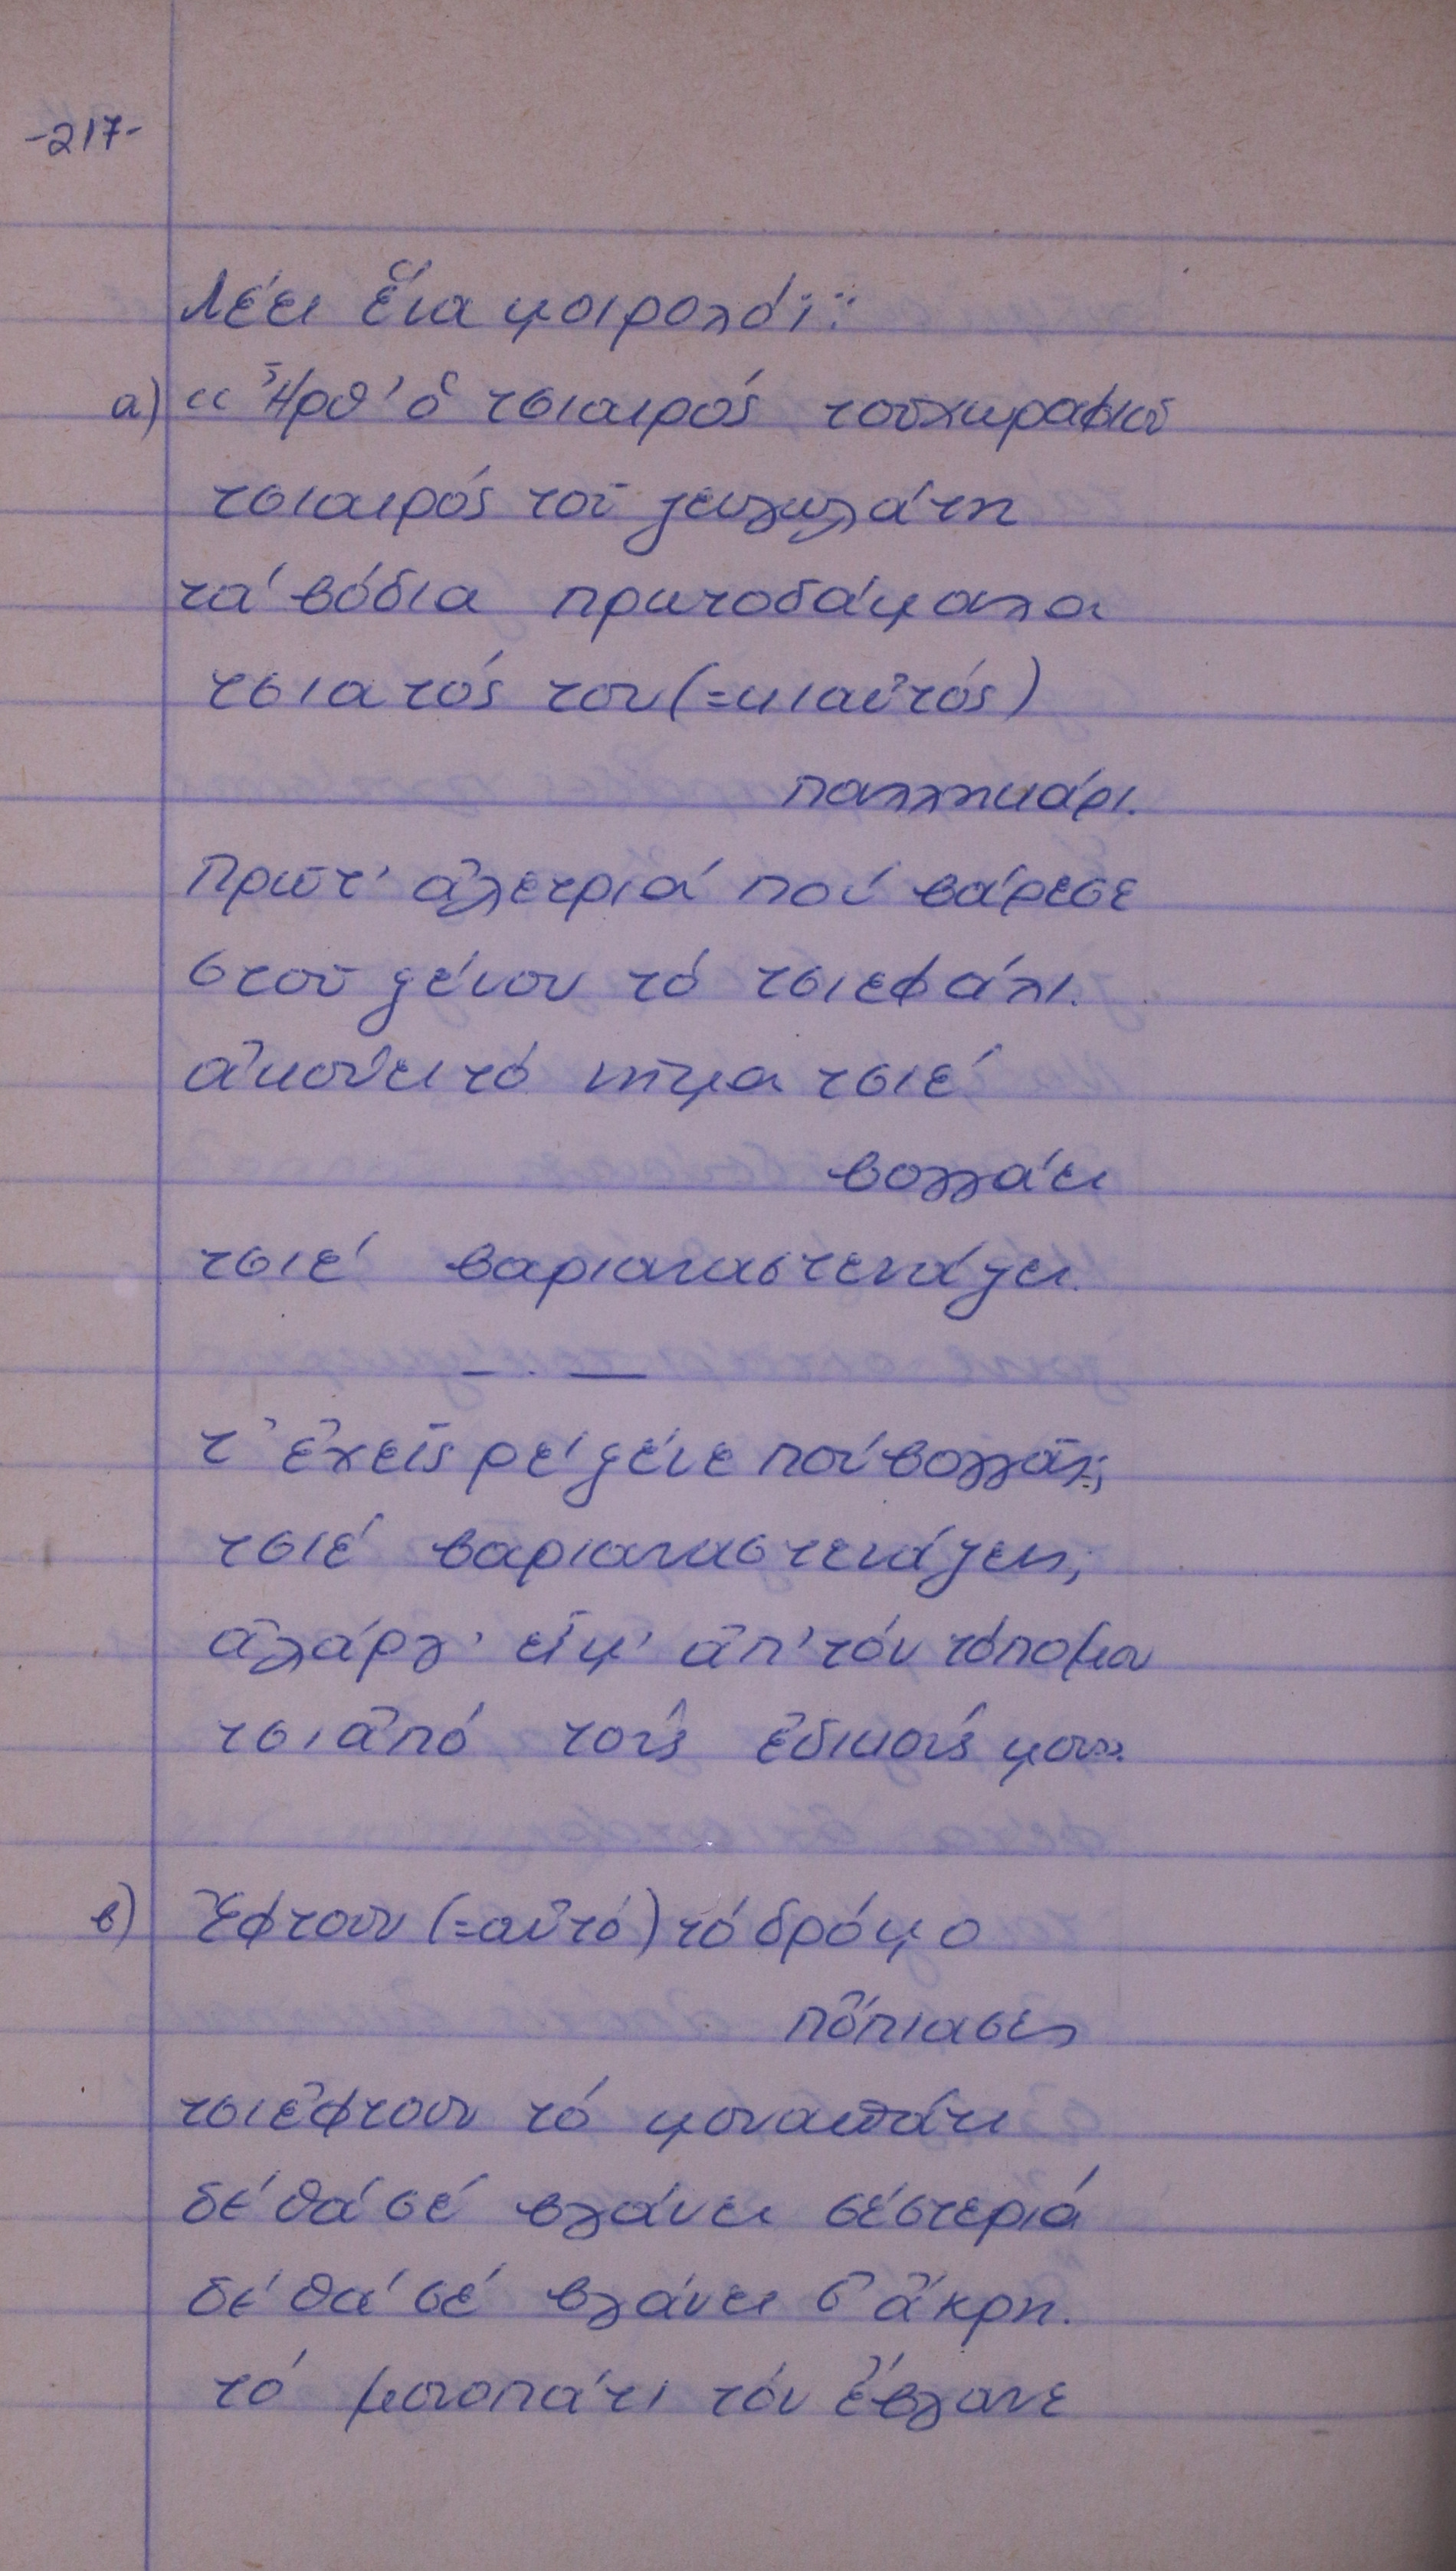 -217-
Λέει ἕνα μοιρολόι:
α) «Ἦρθ' ὁ τσιαιρός τοῦ χωραφιοῦ
τσιαιρός τοῦ ζευγωλάτη
τά βόδια πρωτοδάμαλα
τσιατός του (=κιαὐτός)
παλληκάρι.
Πρώτ' ἀλετριά πού βάρεσε
στοῦ ξένου τό τσιεφάλι.
ἀκούει τό μνῆμα τσιέ
βογγάει
τσιέ βαριαναστενάζει.
— . —
τ' ἔχεις ρέ ξένε πού βογγᾶς;
τσιέ βαριαναστενάζεις;
ἀλάργ' εἶμ' ἀπ' τόν τόπο μου
τσι ἀπό τούς ἐδικούς μου».
β) Ἔφτουν (=αὐτό) τό δρόμο
πὄπιασες
τσιἔφτουν τό μονοπάτι
δέ θά σέ βγάνει σέ στεριά
δέ θά σέ βγάνει σ' ἄκρη.
τό μονοπάτι τόν ἔβγανε